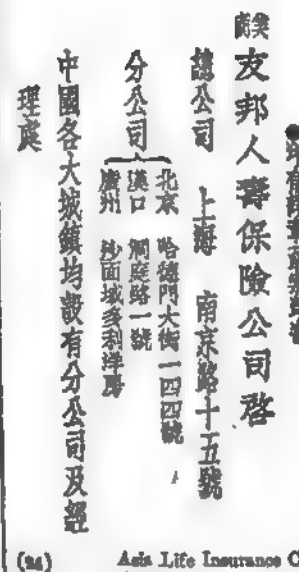 美商友邦人壽保險公司啓
總公司 上海 南京路十五號
分公司
北京 哈德門大街一四四號
漢口 洞庭路一號
廣州 沙面域多利洋房
中國各大城鎮均設有分公司及經
理處
(24) Asia Life Insurance C